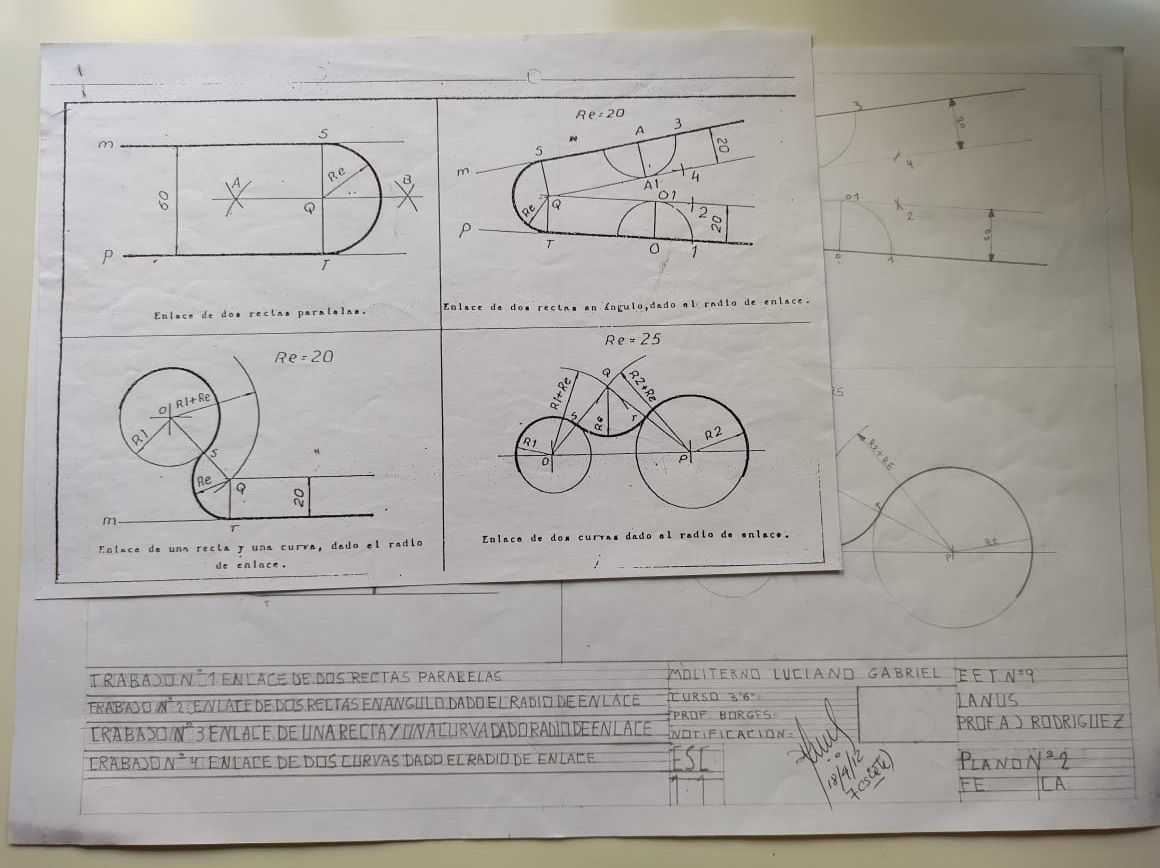 m
S
Re
A
B
Q
60
P
T
Enlace de dos rectas paralelas.
Re=20
3
A
S
20
m
4
A1
O1
Q
Re
2
20
P
T
O
1
Enlace de dos rectas en ángulo,dado el radio de enlace.
Re=20
O
R1+Re
R1
S
Re
Q
20
m
T
Enlace de una recta y una curva, dado el radio
de enlace.
Re=25
Q
R1+Re
R2+Re
S
Re
T
R1
R2
O
P
Enlace de dos curvas dado el radio de enlace.
3
20
4
O1
2
1
R2+RE
T
R2
P
T
TRABAJO Nº 1 ENLACE DE DOS RECTAS PARABELAS
TRABAJO Nº 2: ENLACE DE DOS RECTAS EN ANGULO DADO EL RADIO DE ENLACE
TRABAJO Nº 3 ENLACE DE UNA RECTA Y UNA CURVA DADO RADIO DE ENLACE
TRABAJO Nº 4: ENLACE DE DOS CURVAS DADO EL RADIO DE ENLACE
MOLITERNO LUCIANO GABRIEL
CURSO 3º6º:
PROF: BORGES:
NOTIFICACION:
ESC:
1:1
18/4/12
7 (siete)
E.E.T. Nº9
LANUS
PROF.A.J RODRIGUEZ
PLANO Nº2
FE
CA: